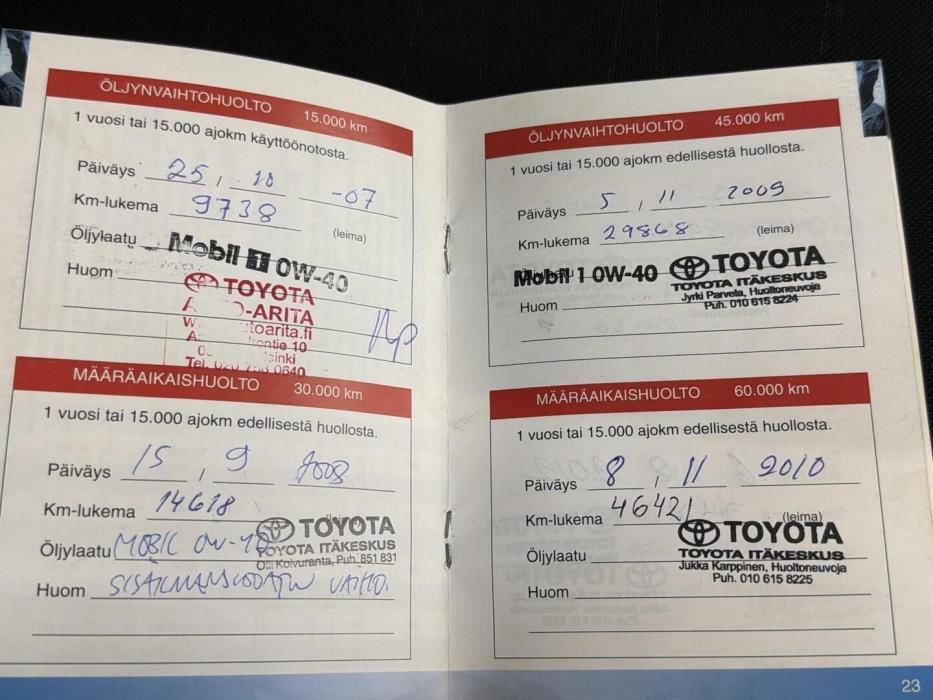 ÖLJYNVAIHTOHUOLTO 15.000 km
1 vuosi tai 15.000 ajokm käyttöönotosta.
Päiväys 25 , 10 -07
Km-lukema 9738
(leima)
Öljylaatu Mobil 1 0W-40
Huom
TOYOTA
-ARITA
toarita.fi
ntie 10
sinki
0640
MÄÄRÄAIKAISHUOLTO 30.000 km
1 vuosi tai 15.000 ajokm edellisestä huollosta.
Päiväys 15 , 9 2008
Km-lukema 14618
Öljylaatu MOBIL 0W-40
TOYOTA
TOYOTA ITÄKESKUS
Olli Koivuranta, Puh. 851 831
Huom SISÄILMANSUODATIN VAIHD.
ÖLJYNVAIHTOHUOLTO 45.000 km
1 vuosi tai 15.000 ajokm edellisestä huollosta.
Päiväys 5 , 11 2009
Km-lukema 29868 (leima)
Mobil 1 0W-40
TOYOTA
TOYOTA ITÄKESKUS
Jyrki Parvela, Huoltoneuvoja
Puh. 010 615 8224
Huom
MÄÄRÄAIKAISHUOLTO 60.000 km
1 vuosi tai 15.000 ajokm edellisestä huollosta.
Päiväys 8 , 11 2010
Km-lukema 46421 (leima)
Öljylaatu
TOYOTA
TOYOTA ITÄKESKUS
Jukka Karppinen, Huoltoneuvoja
Puh. 010 615 8225
Huom
23